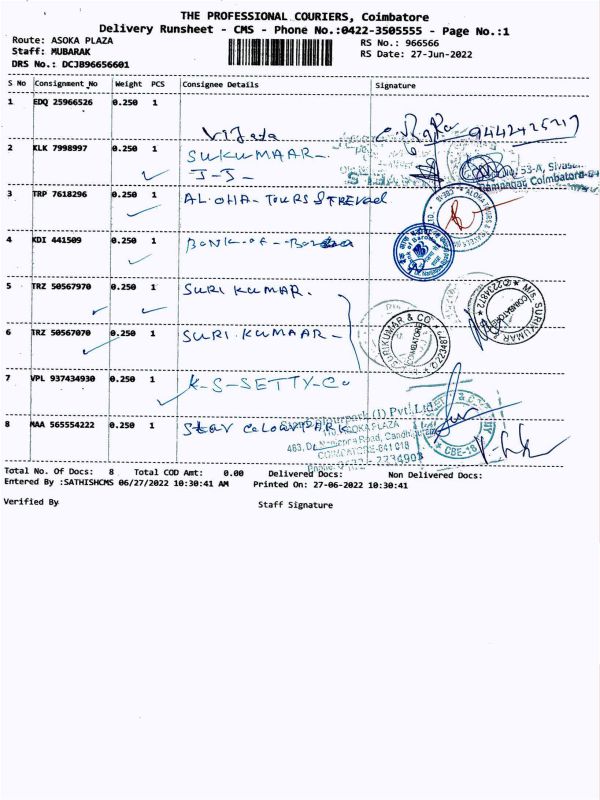 THE PROFESSIONAL COURIERS, Coimbatore
Delivery Runsheet - CMS - Phone No.:0422-3505555 - Page No.:1
Route: ASOKA PLAZA
Staff: MUBARAK
DRS No.: DCJB96656601
RS No.: 966566
RS Date: 27-Jun-2022
S No Consignment No Weight PCS Consignee Details Signature
1 EDQ 25966526 0.250 1
Vijaya
2 KLK 7998997 0.250 1 SUKUMAAR-
J-J-
53-A, Sivasa
Ramanag Coimbatore-
3 TRP 7618296 0.250 1 ALOHA-TOURS &
4 KDI 441509 0.250 1 BANK-OF-
5 TRZ 50567970 0.250 1 SURI KUMAR.
M/S. SURIKUMAR
COIMBATORE
6 TRZ 50567070 0.250 1 SURI.KUMAAR-
SURIKUMAR & CO
COIMBATORE
7 VPL 937434930 0.250 1 K-S-SETTY-Co
8 MAA 565554222 0.250 1 Star COLOURPARK
colourpark (I) Pvt. Ltd
ASOKA PLAZA
Road, Gandhipuram
COIMBATORE-641 018
CBE-18
Total No. Of Docs: 8 Total COD Amt: 0.00 Delivered Docs: Non Delivered Docs:
Entered By :SATHISHCMS 06/27/2022 10:30:41 AM Printed On: 27-06-2022 10:30:41
Verified By Staff Signature